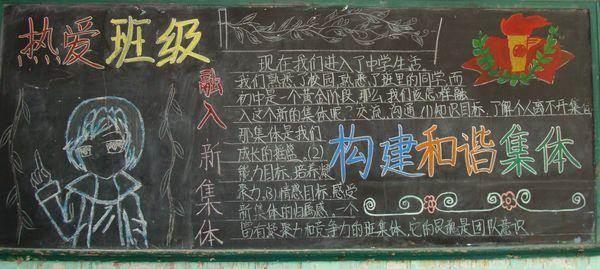 热爱班级
融入新集体
现在我们进入了中学生活。
我们熟悉了校园,熟悉了班里的同学,而
初中是一个黄金阶段,那么,我们该怎样融
入这个新的集体呢?交流,沟通,(1)知识目标,了解个人离不开集体
那集体是我们
成长的摇篮(2)
能力目标,培养凝
聚力,(3)情感目标,感受
新集体的温暖感。一个
富有凝聚力和竞争力的班集体,它的灵魂是团队意识.
构建和谐集体